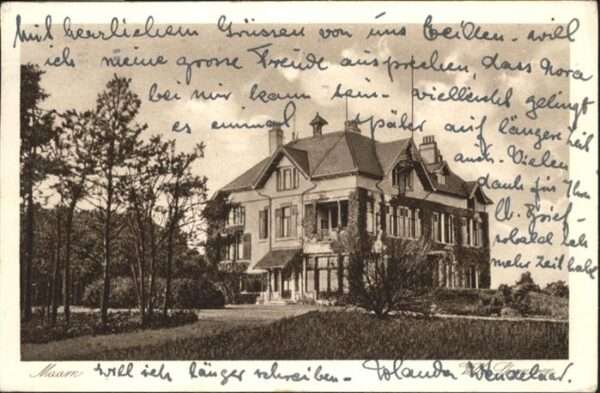 Mit herzlichem Grüssen von uns beiden - will
ich meine grosse Freude aussprechen, dass Nora
bei mir kam sein - vielleicht gelingt
es einmal später auf längere Zeit
auch. Vielen
dank für Ihr
Brief -
sobald ich
mehr Zeit habe
will ich länger schreiben -
Maarn